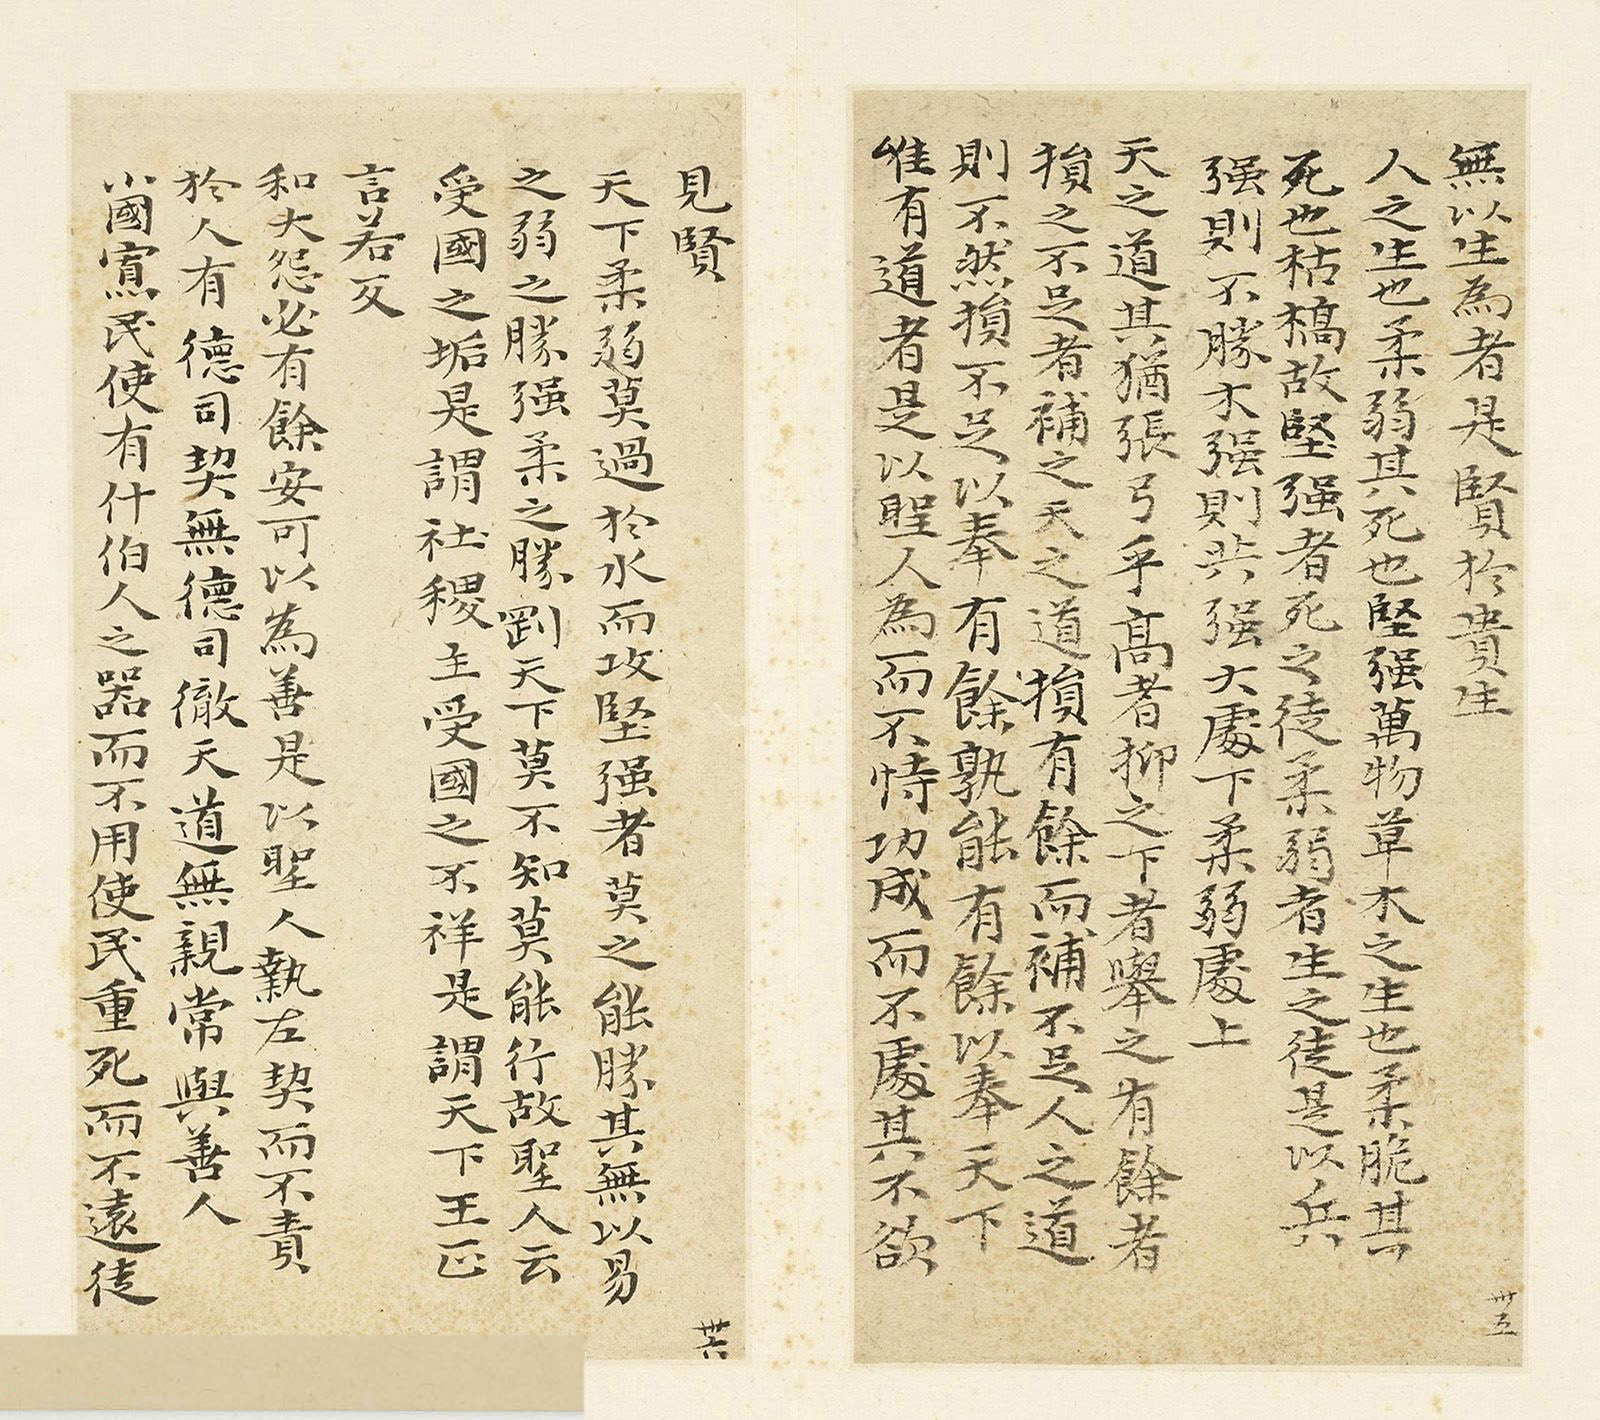 無以生為者是賢於貴生
人之生也柔弱其死也堅强萬物草木之生也柔脆其
死也枯槁故堅强者死之徒柔弱者生之徒是以兵
强則不勝木强則共强大處下柔弱處上
天之道其猶張弓乎高者抑之下者舉之有餘者
損之不足者補之天之道損有餘而補不足人之道
則不然損不足以奉有餘孰能有餘以奉天下
唯有道者是以聖人為而不恃功成而不處其不欲
卅五
見賢
天下柔弱莫過於水而攻堅强者莫之能勝其無以易
之弱之勝强柔之勝剛天下莫不知莫能行故聖人云
受國之垢是謂社稷主受國之不祥是謂天下王正
言若反
和大怨必有餘怨安可以為善是以聖人執左契而不責
於人有德司契無德司徹天道無親常與善人
小國寡民使有什伯人之器而不用使民重死而不遠徙
卅六